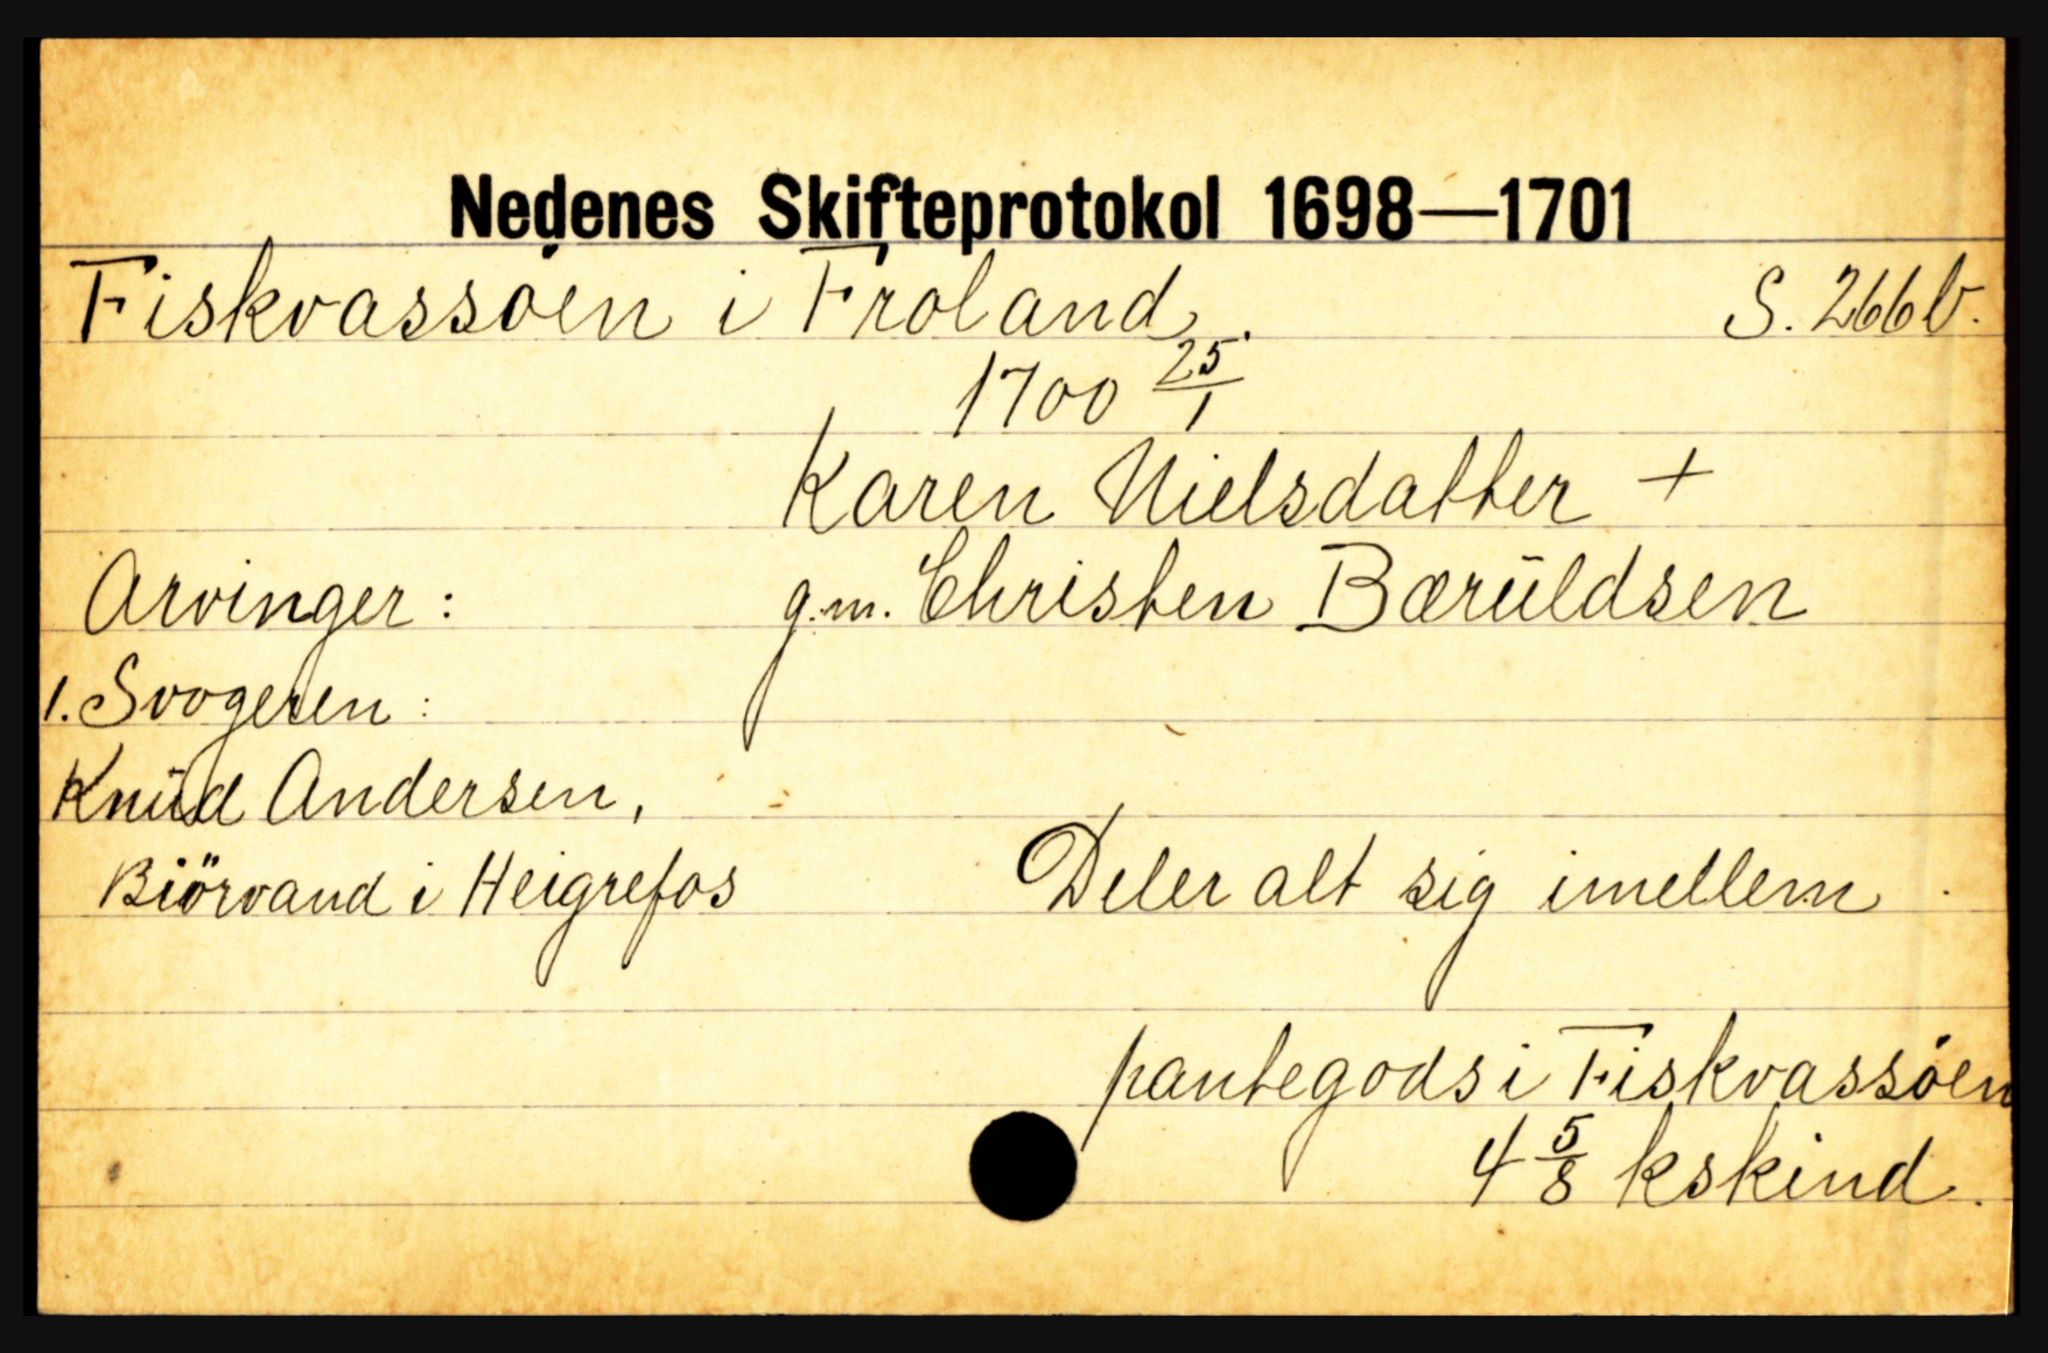 Nedenes Skifteprotokol 1698—1701
Fiskvassöen i Froland. S. 266b.
1700 25/1
Karen Nielsdatter +
Arvinger: g.m. Christen Bærŭldsen
1. Svogeren:
Knŭd Andersen,
Biörvand i Heigrefos Deler alt sig imellem
pantegods i Fiskvassöen
4 5/8 kskind.